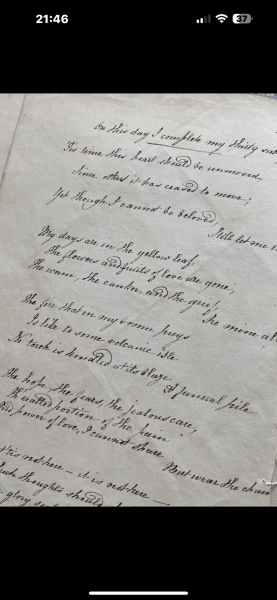 21:46
37
On this day I complete my thirty
'Tis time this heart should be unmoved,
Since others it has ceased to move;
Yet though I cannot be beloved,
Still let me
My days are in the yellow leaf,
The flowers and fruits of love are gone,
The worm the canker, and the grief,
Are mine al
The fire that in my bosom preys
Is like to some volcanic isle
No torch is kindled at its blaze
A funeral pile
The hope, the fears, the jealous care,
Th exalted portion of the pain
power of love, I cannot share
But wear the chain
'tis not here — it is not here —
Such thoughts should
glory